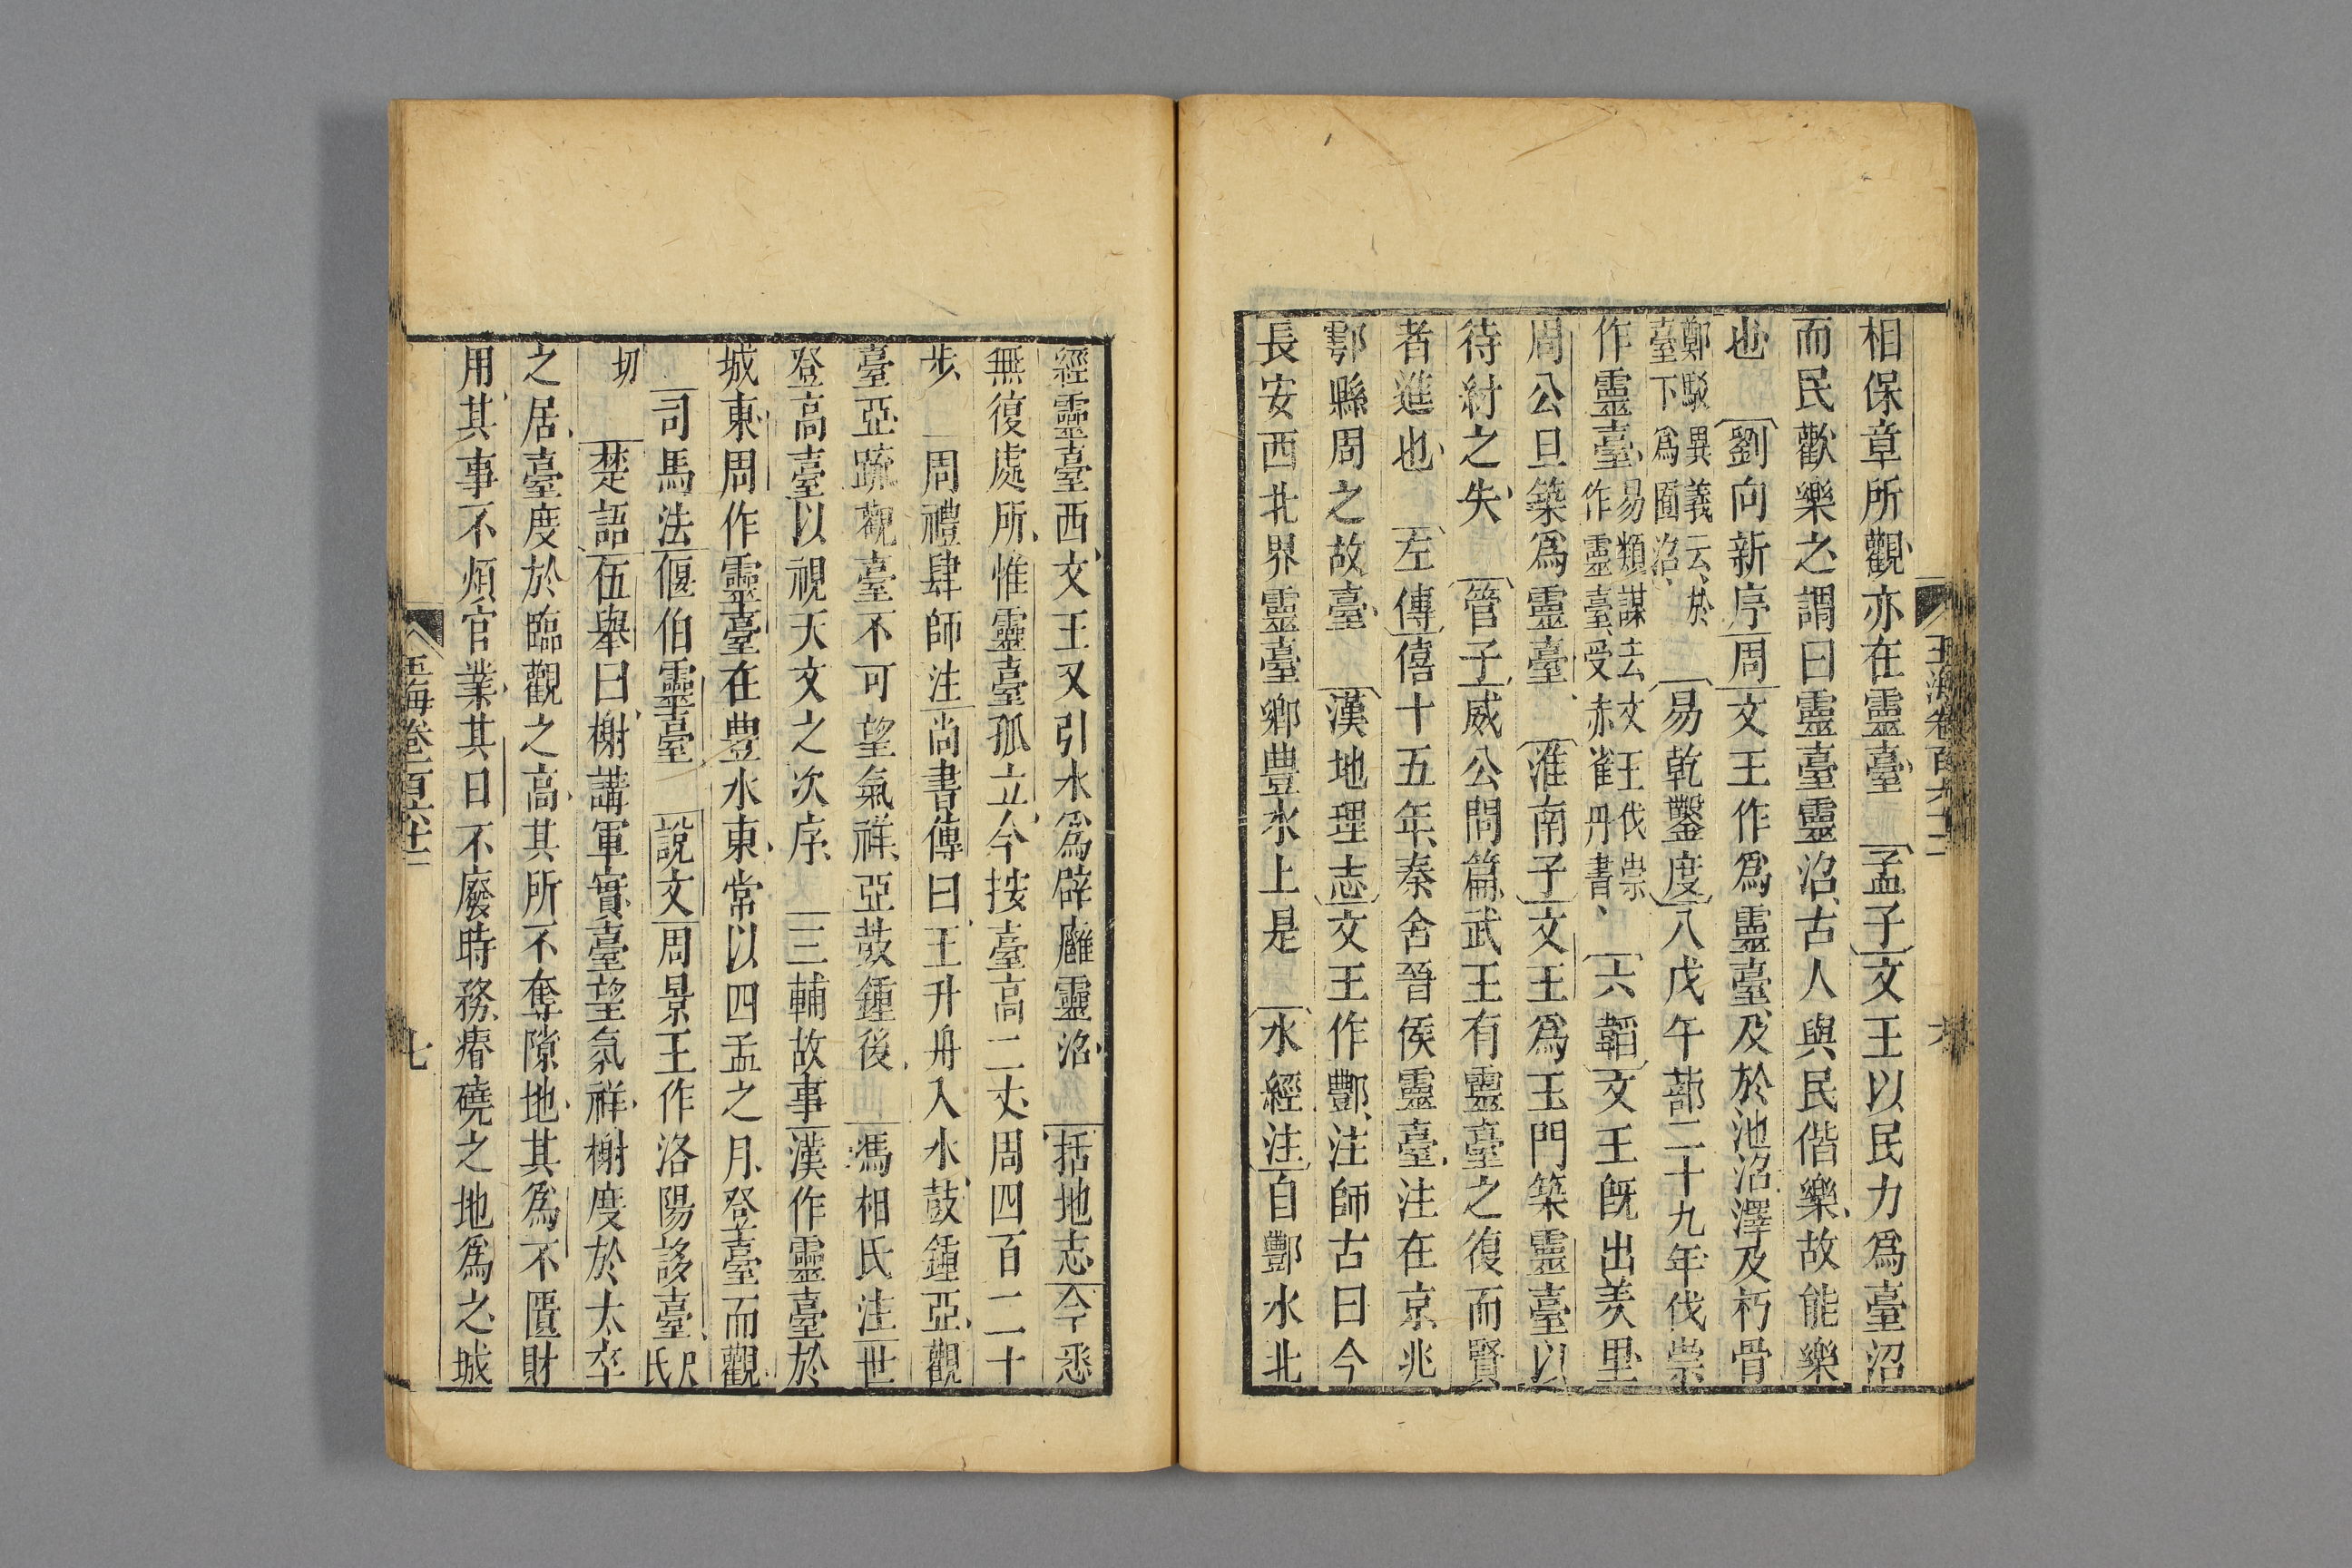 玉海卷百六十二
六
相保章所觀亦在靈臺孟子文王以民力爲臺沼
而民歡樂之謂曰靈臺靈沼古人與民偕樂故能樂
也劉向新序周文王作爲靈臺及於池沼澤及朽骨
鄭駮異義云於
臺下爲囿沼
易乾鑿度八戊午蔀二十九年伐崇
作靈臺
易類謀云文王伐崇
作靈臺受赤雀丹書
六韜文王旣出羑里
周公旦築爲靈臺淮南子文王爲玉門築靈臺以
待紂之失管子威公問篇武王有靈臺之復而賢
者進也左傳僖十五年秦舍晉侯靈臺注在京兆
鄠縣周之故臺漢地理志文王作酆注師古曰今
長安西北界靈臺鄉豊水上是水經注自酆水北
經靈臺西文王又引水爲辟廱靈沼括地志今悉
無復處所惟靈臺孤立今按臺高二丈周四百二十
步周禮肆師注尚書傳曰王升舟入水鼓鍾亞觀
臺亞疏觀臺不可望氣祥亞鼓鍾後馮相氏注世
登高臺以視天文之次序三輔故事漢作靈臺於
城東周作靈臺在豊水東常以四孟之月登臺而觀
司馬法偃伯靈臺說文周景王作洛陽誃臺
尺
氏
切
楚語伍舉曰榭講軍實臺望氛祥榭度於太卒
之居臺度於臨觀之高其所不奪隙地其爲不匱財
用其事不煩官業其日不廢時務瘠磽之地爲之城
玉海卷百六十二
七